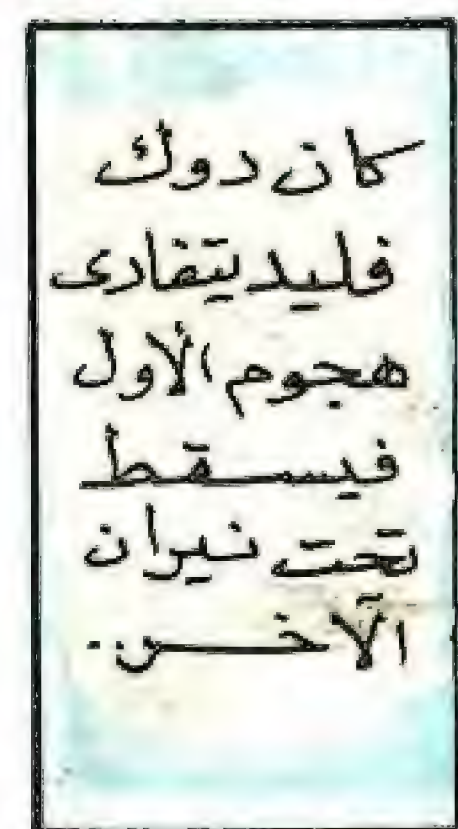 كان دوك
فليد يتفادى
هجوم الأول
فيسقط
تحت نيران
الآخر.